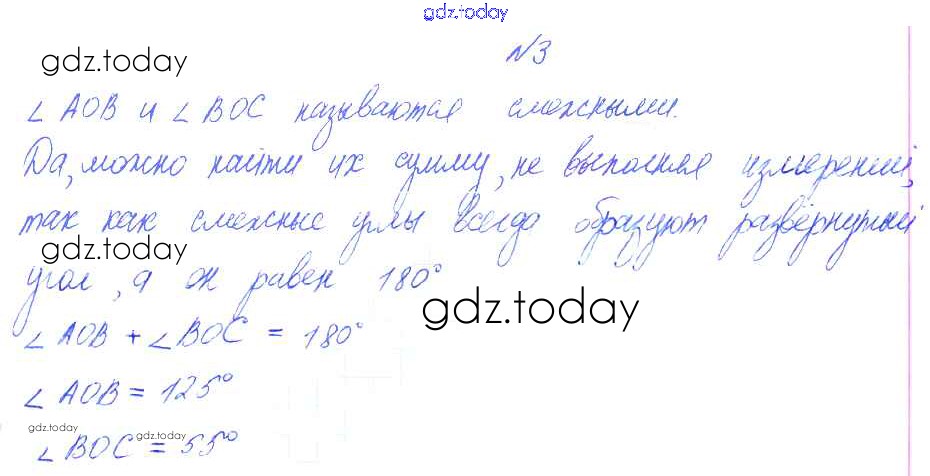 gdz.today
№3
gdz.today
∠ AOB и ∠ BOC называются смежными.
Да, можно найти их сумму, не выполняя измерений,
так как смежные углы всегда образуют развёрнутый
gdz.today
угол, а он равен 180°
gdz.today
∠ AOB + ∠ BOC = 180°
∠ AOB = 125°
gdz.today
gdz.today
∠ BOC = 55°